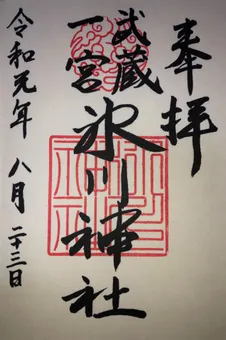 奉拝
武蔵
一宮
氷川神社
令和元年八月二十三日